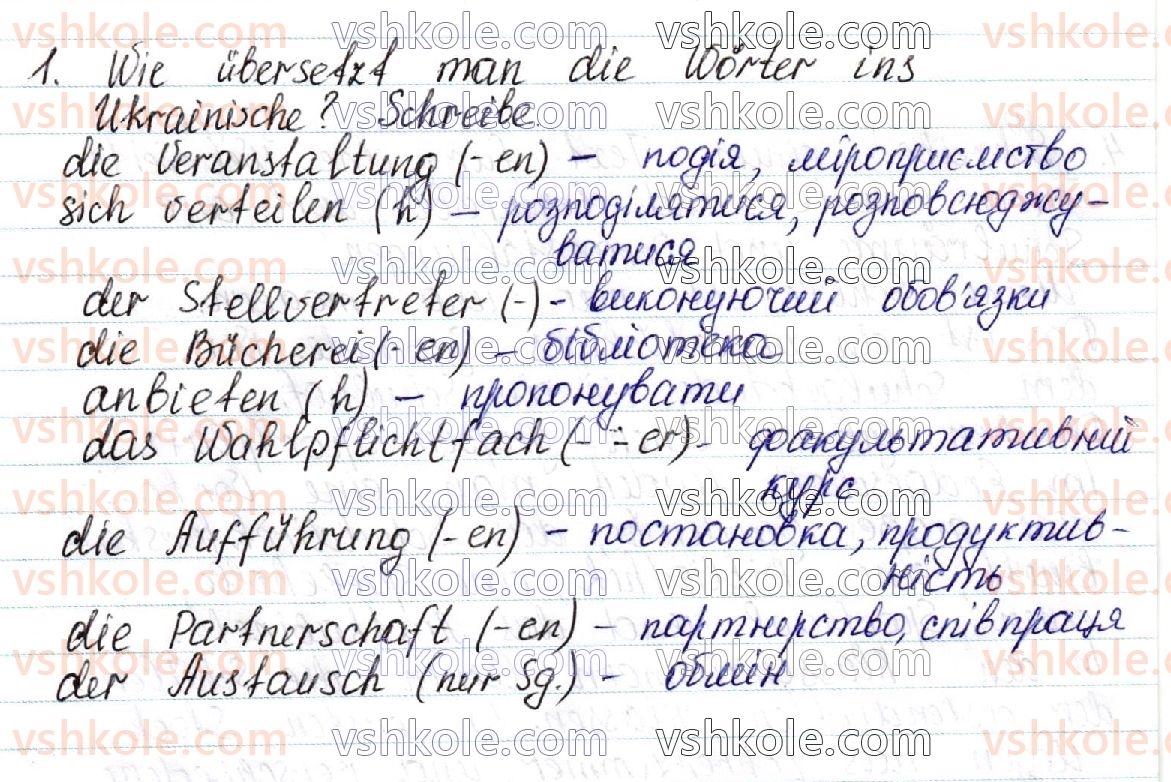 1. Wie übersetzt man die Wörter ins
Ukrainische? Schreibe
die Veranstaltung (-en) – подія, міроприємство
sich verteilen (h) – розподілятися, розповсюджу-
ватися
der Stellvertreter (-) - виконуючий обов'язки
die Bücherei (-en) – бібліотека
anbieten (h) – пропонувати
das Wahlpflichtfach (-̈er) - факультативний
курс
die Aufführung (-en) – постановка, продуктив-
ність
die Partnerschaft (-en) – партнерство, співпраця
der Austausch (nur Sg.) - обмін